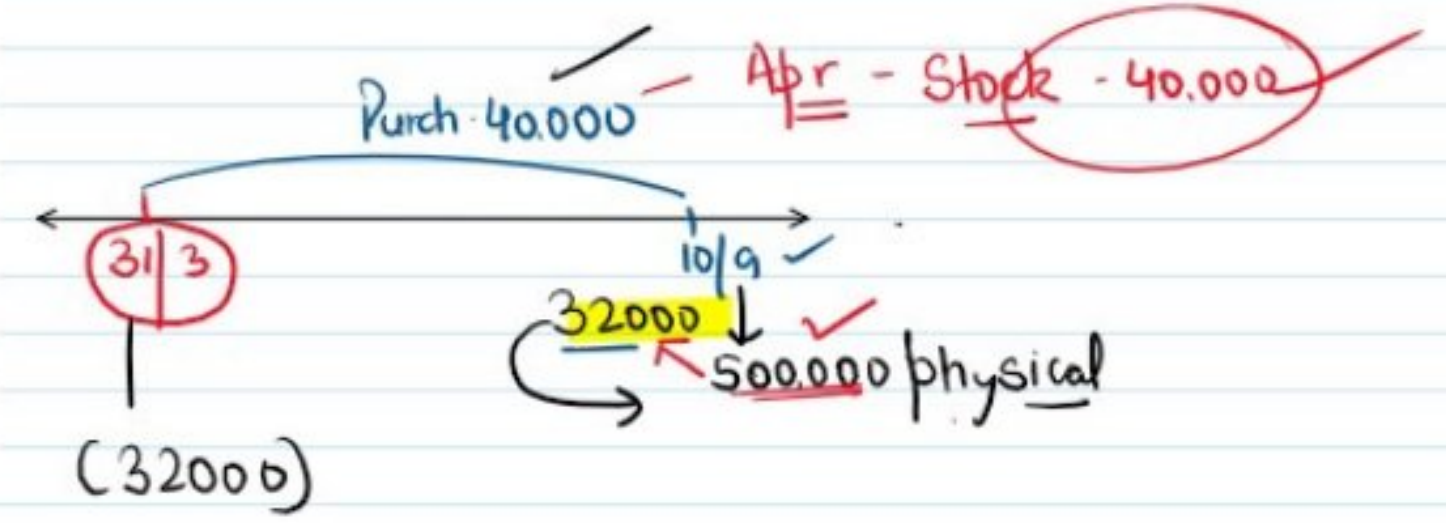 Purch · 40.000 - Apr - Stock - 40.000
31|3
10/9
32000
500.000 physical
(32000)